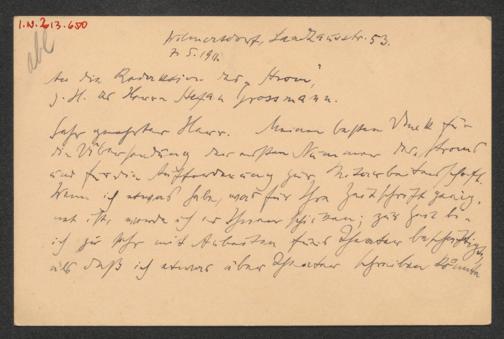 I.N. 213.650
abl
Wilmersdorf, Landhausstr. 53.
7. 5. 1911
An die Redaktion des „Strom",
z. H. des Herrn Stefan Grossmann.
Sehr geehrter Herr. Meinen besten Dank für
die Übersendung der ersten Nummer des „Stroms"
und für die Aufforderung zur Mitarbeiterschaft.
Wenn ich etwas habe, was für Ihre Zeitschrift geeig-
net ist, werde ich es Ihnen schicken; zur Zeit bin
ich zu sehr mit Arbeiten fürs Theater beschäftigt,
als daß ich etwas über Theater schreiben könnte